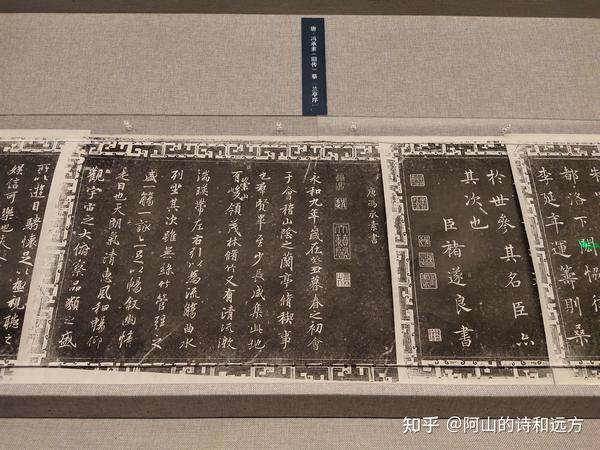 唐·冯承素（旧传）摹《兰亭序》
都落下閎協律
李延年運籌則桑
於世參其名臣亦
其次也
臣褚遂良書
唐馮承素書
永和九年歲在癸丑暮春之初會
于會稽山陰之蘭亭脩稧事
也羣賢畢至少長咸集此地
有崇山峻領茂林脩竹又有清流激
湍暎帶左右引以為流觴曲水
列坐其次雖無絲竹管弦之
盛一觴一詠亦足以暢敘幽情
是日也天朗氣清惠風和暢仰
觀宇宙之大俯察品類之盛
所以遊目騁懷足以極視聽之
娛信可樂也夫人
知乎 @阿山的诗和远方